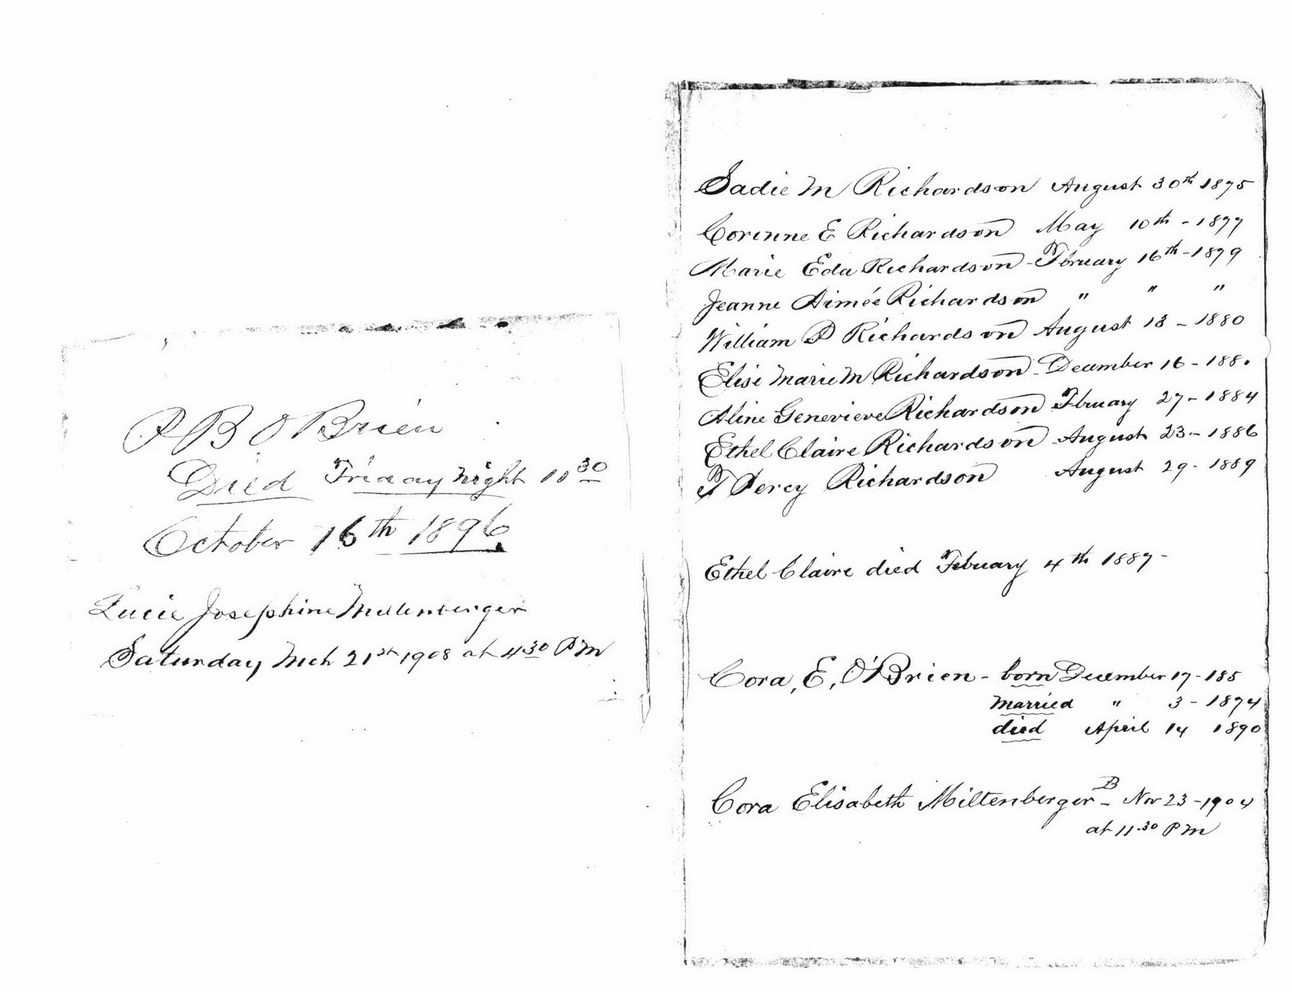 P B O'Brien
Died Friday night 10 30
October 16th 1896.
Lucie Josephine Miltenberger
Saturday Mch 21st 1908 at 4 30 PM
Sadie M Richardson August 30th 1875
Corinne E Richardson May 10th - 1877
Marie Eda Richardson - Fbruary 16th - 1879
Jeanne Aimée Richardson " " "
William P Richardson August 13 - 1880
Elise Marie M Richardson - December 16 - 188
Aline Genevieve Richardson Fbruary 27 - 1884
Ethel Claire Richardson August 23 - 1886
Percy Richardson August 29 - 1889
Ethel Claire died Febuary 4th 1887 -
Cora, E, O'Brien - born December 17 - 185
married " 3 - 1874
died April 14 1890
Cora Elisabeth Miltenberger B - Nov 23 - 1904
at 11 30 PM